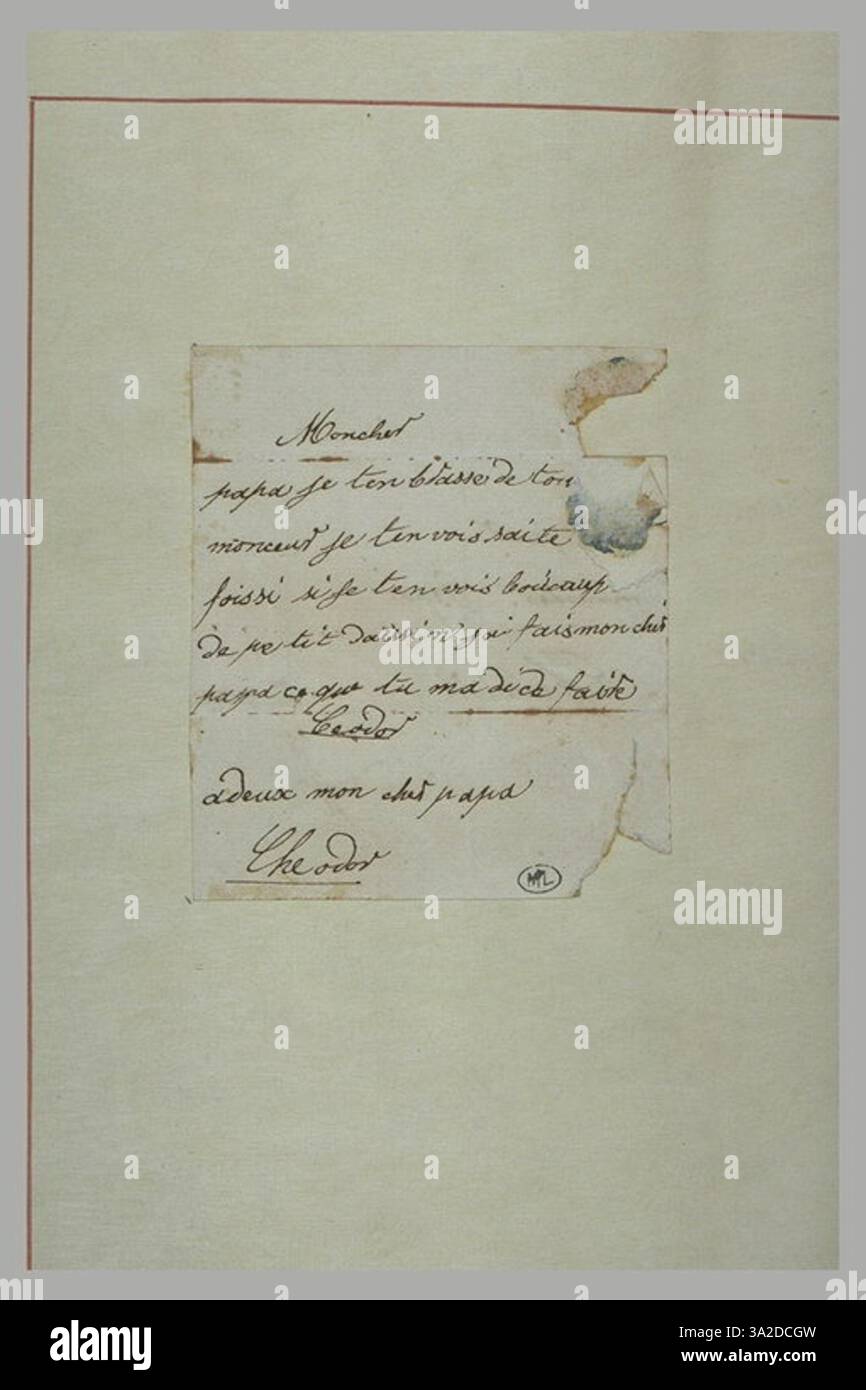 Moncher
papa je ten brasse de tou
monceur je ten vois saite
foissi si je ten vois boucaup
de pe tit jai fais mon cher
papa ce que tu ma di de faire
Teodor
adeux mon cher papa
Theodor
ML
alamy
Image ID: 3A2DCGW
www.alamy.com